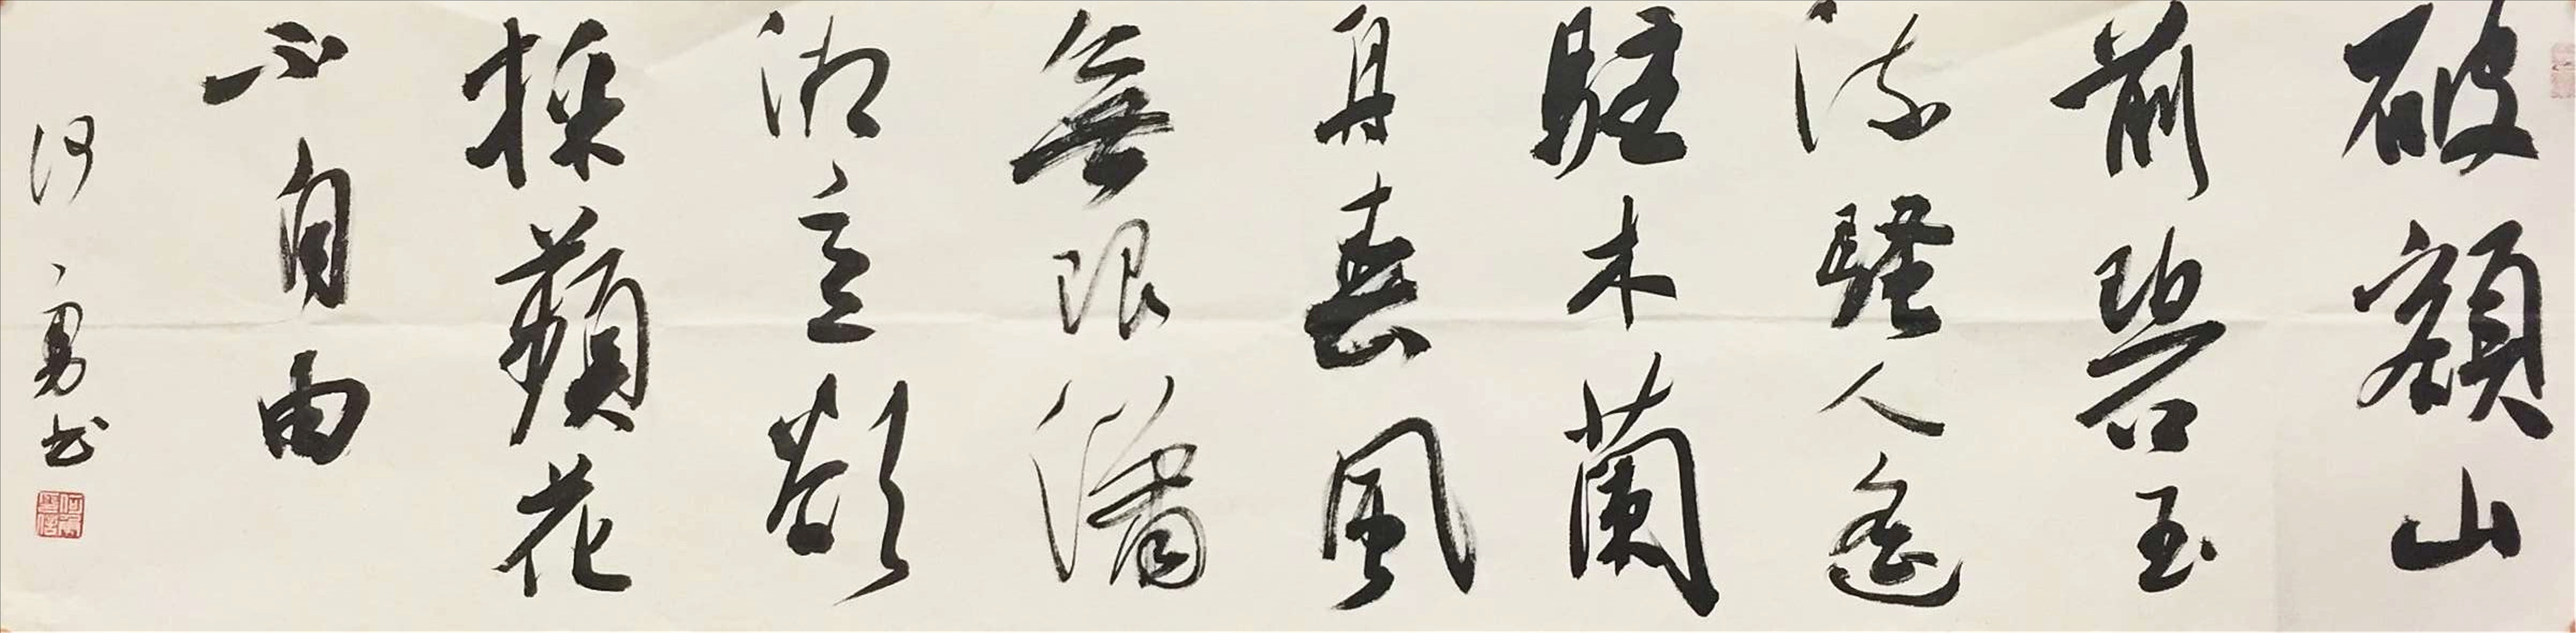 破額山
前碧玉
流騷人遙
駐木蘭
舟春風
無限瀟
湘意欲
採蘋花
不自由
何勇书